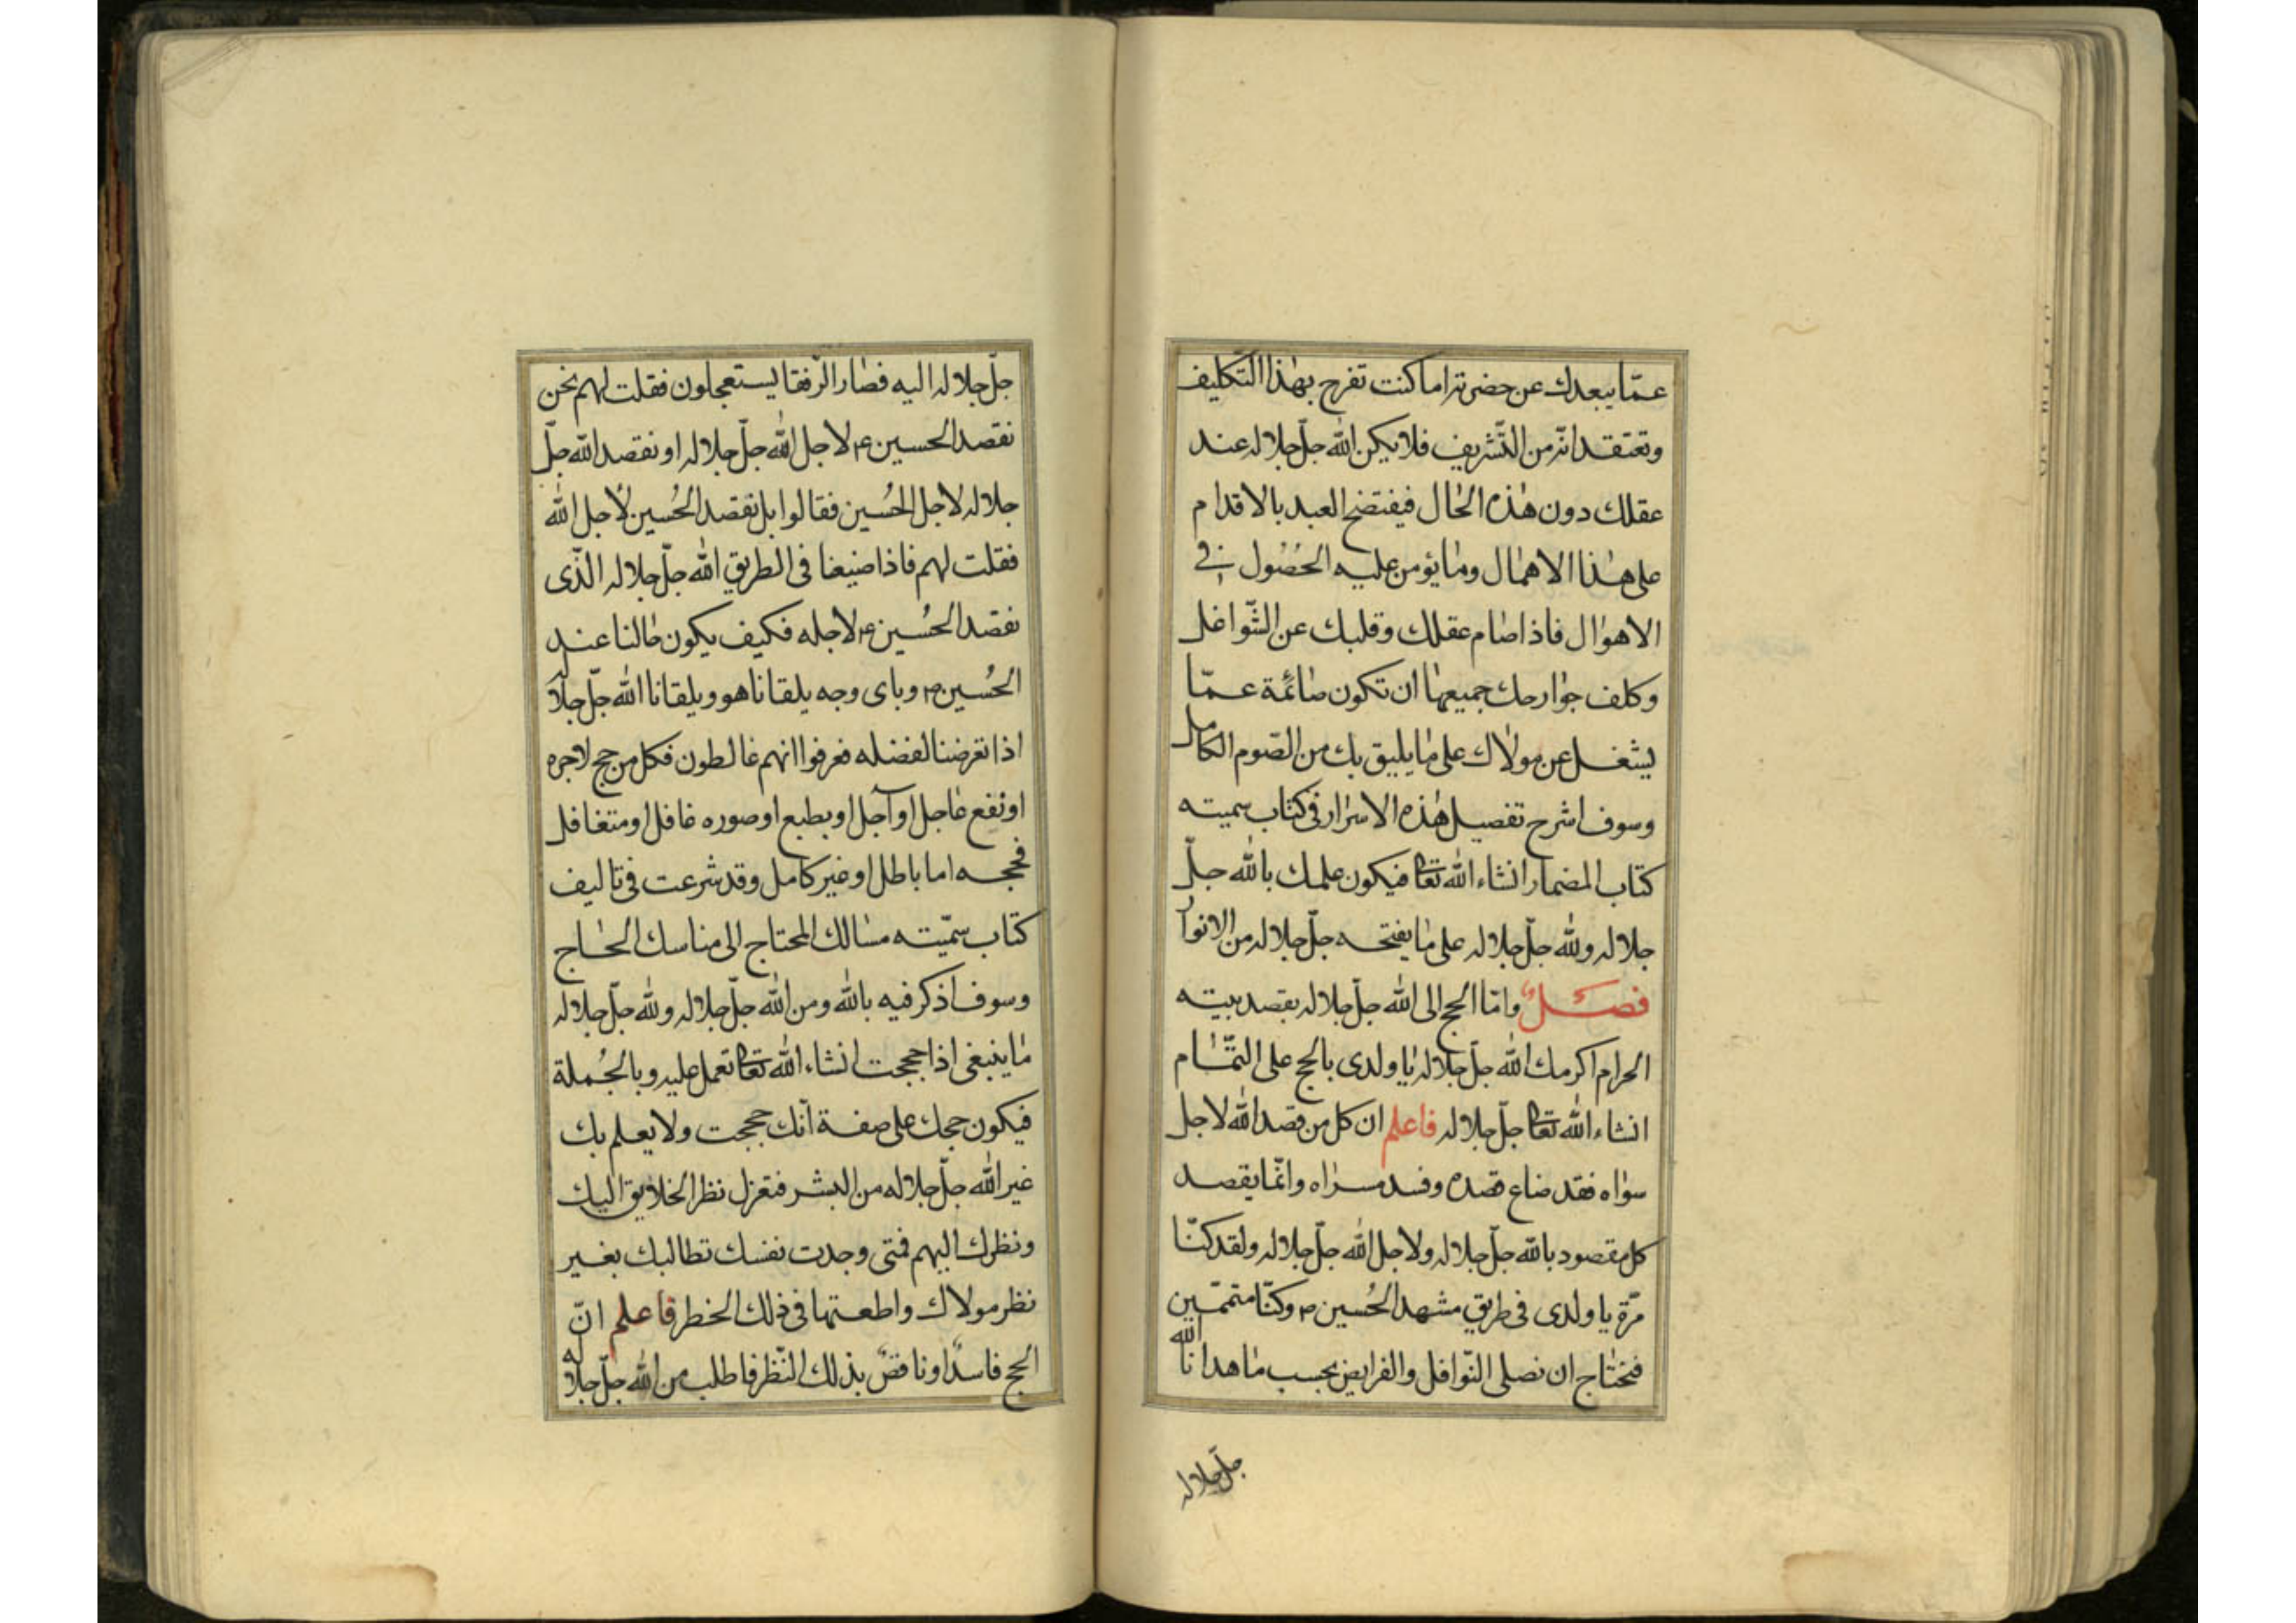 عمّا يبعدك عن حضرته اما كنت تفرح بهذا التّكليف
وتعتقد انّه من التّشريف فلا يكن الله جلّ جلاله عند
عقلك دون هذه الحال فيفتضح العبد بالاقدام
على هذا الاهمال وما يؤمن عليه الحصُول في
الاهوال فاذا صام عقلك وقلبك عن الشّواغل
وكلف جوارحك جميعها ان تكون صائمة عمّا
يشغل عن مولاك على ما يليق بك من الصّوم الكامل
وسوف اشرح تفصيل هذه الاسرار فى كتاب سميته
كتاب المضمار انشاء الله تعا فيكون علمك بالله جلّ
جلاله ولله جلّ جلاله على ما يفتحه جلّ جلاله من الانوار
فصل وامّا الحج الى الله جلّ جلاله بقصد بيته
الحرام اكرمك الله جلّ جلاله يا ولدى بالحج على التّمام
انشاء الله تعا جلّ جلاله فاعلم ان كل من قصد الله لاجل
سواه فقد ضاع قصده وفسد مسراه وانّما يقصد
كل مقصود بالله جلّ جلاله ولاجل الله جلّ جلاله ولقد كنّا
مرّة يا ولدى فى طريق مشهد الحُسين ص وكنّا متممّين
فنحتاج ان نصلى النّوافل والفرايض بحسب ما هدانا الله
جلّ جلاله
جلّ جلاله اليه فصار الرّفقا يستعجلون فقلت لهم نحن
نقصد الحسين ع لاجل الله جلّ جلاله او نقصد الله جلّ
جلاله لاجل الحُسين فقالوا بل نقصد الحُسين لأجل الله
فقلت لهم فاذا ضيعنا فى الطريق الله جلّ جلاله الّذى
نقصد الحُسين ع لاجله فكيف يكون حالنا عند
الحُسين ص وباى وجه يلقانا هو ويلقانا الله جلّ جلاله
اذا تعرضنا لفضله فعرفوا انهم غالطون فكل من حج لاجره
او نفع عاجل او آجل او بطبع او صوره غافل او متغافل
فحجه اما باطل او غير كامل وقد شرعت فى تاليف
كتاب سمّيته مسالك المحتاج الى مناسك الحاج
وسوف اذكر فيه بالله ومن الله جلّ جلاله ولله جلّ جلاله
ما ينبغى اذا حججت انشاء الله تعا تعمل عليه وبالجُملة
فيكون حجك على صفة أنّك حججت ولا يعلم بك
غير الله جلّ جلاله من البشر فتعزل نظر الخلايق اليك
ونظرك اليهم فمتى وجدت نفسك تطالبك بغير
نظر مولاك واطعتها فى ذلك الخطر فاعلم انّ
الحج فاسدًا وناقصٌ بذلك النّظر فاطلب من الله جلّ جلاله